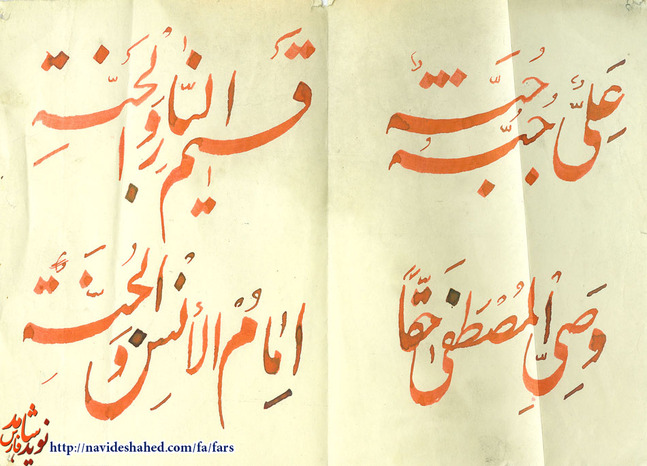 عَلِیٌّ حُبُّهُ جُنَّة
قَسیمُ النّارِ وَالجَنَّةِ
وَصِیُّ المُصْطَفَی حَقّاً
اِمامُ الأنسِ وَ الجِنَّةِ
نوید شاهد فارس
http://navideshahed.com/fa/fars